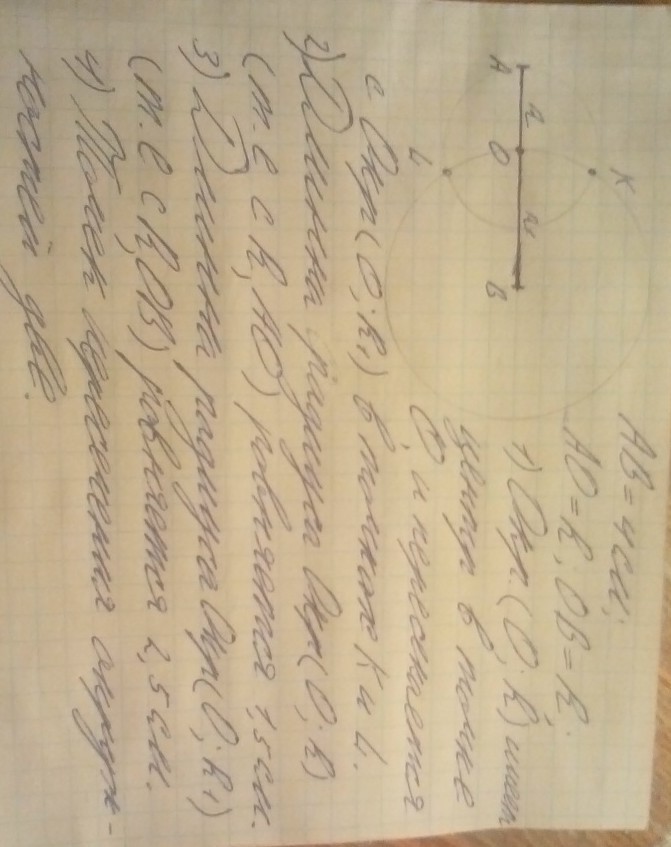 AB = 4см;
AO = R; OB = R;
1) Окр. (O; R) имеет
центр в точке
O, и пересекается
с Окр(O; R1) в точках K и L.
2) Длинна радиуса Окр(O; R)
(т.е с R, AO) ровняется 1,5см.
3) Длинна радиуса Окр(O; R1)
(т.е с R, OB) ровняется 2,5см.
4) Точек пересечения окруж-
ностей две.
A
R
O
R
B
K
L